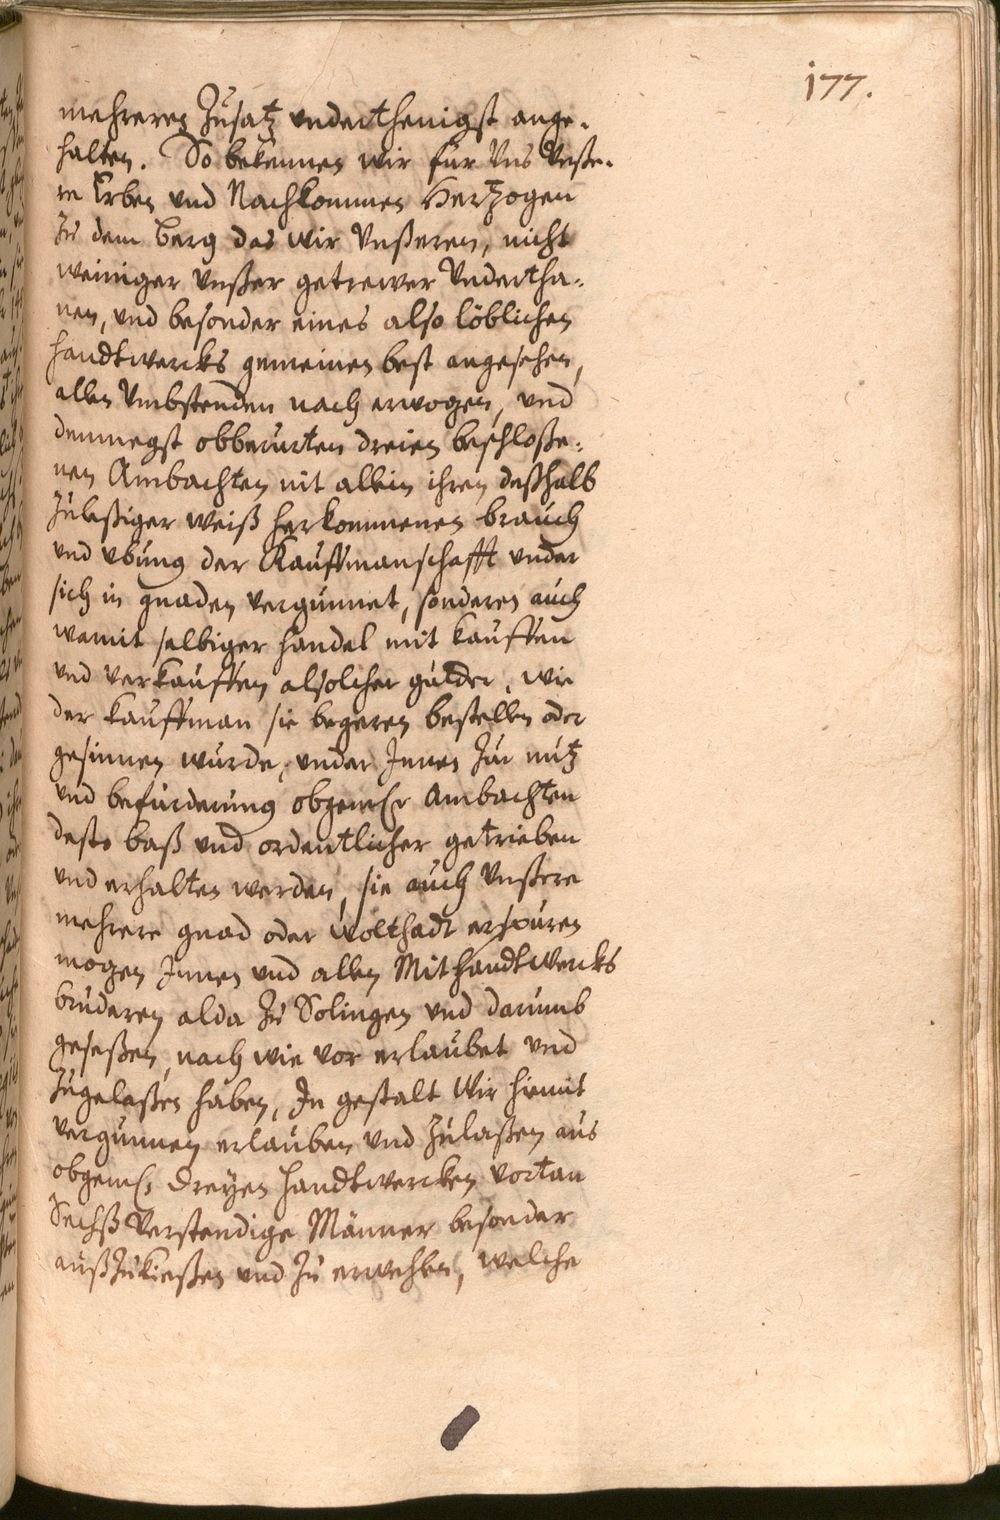 177.
mehreren Zusatz underthenigst ange-
halten. So bekennen wir für Uns Unße-
re Erben und Nachkommen Hertzogen
zu dem Berg das wir Unßeren, nicht
weiniger Unßer getrewer Undertha-
nen, und besonder eines also löblichen
handtwercks gemeinen best angesehen,
allen Umbstenden nach erwogen, und
demnegst obberurten dreien beschloße-
nen Ambachten nit allein ihren deßhalb
zuleßiger weiß herkommenen brauch
und ubung der Kauffmanschafft under
sich in gnaden vergunnet, sonderen auch
wamit selbiger handel mit kauffen
und verkauffen alsolcher gulder, wie
der kauffman sie begeren bestellen oder
gesinnen wurde, under Innen zur nutz
und befurderung obgemlr Ambachten
desto baß und ordentlicher getrieben
und erhalten werden, sie auch Unßere
mehrere gnad oder wolthadt erspuren
mogen Innen und allen Mithandtwercks
bruderen alda zu Solingen und darumb
geseßen, nach wie vor erlaubet und
zugelaßen haben, In gestalt Wir hiemit
vergunnen erlauben und zulaßen aus
obgeml. dreyen handtwercken vortan
Sechß verstendige Männer besonder
außzukießen und zu erwehlen, welche